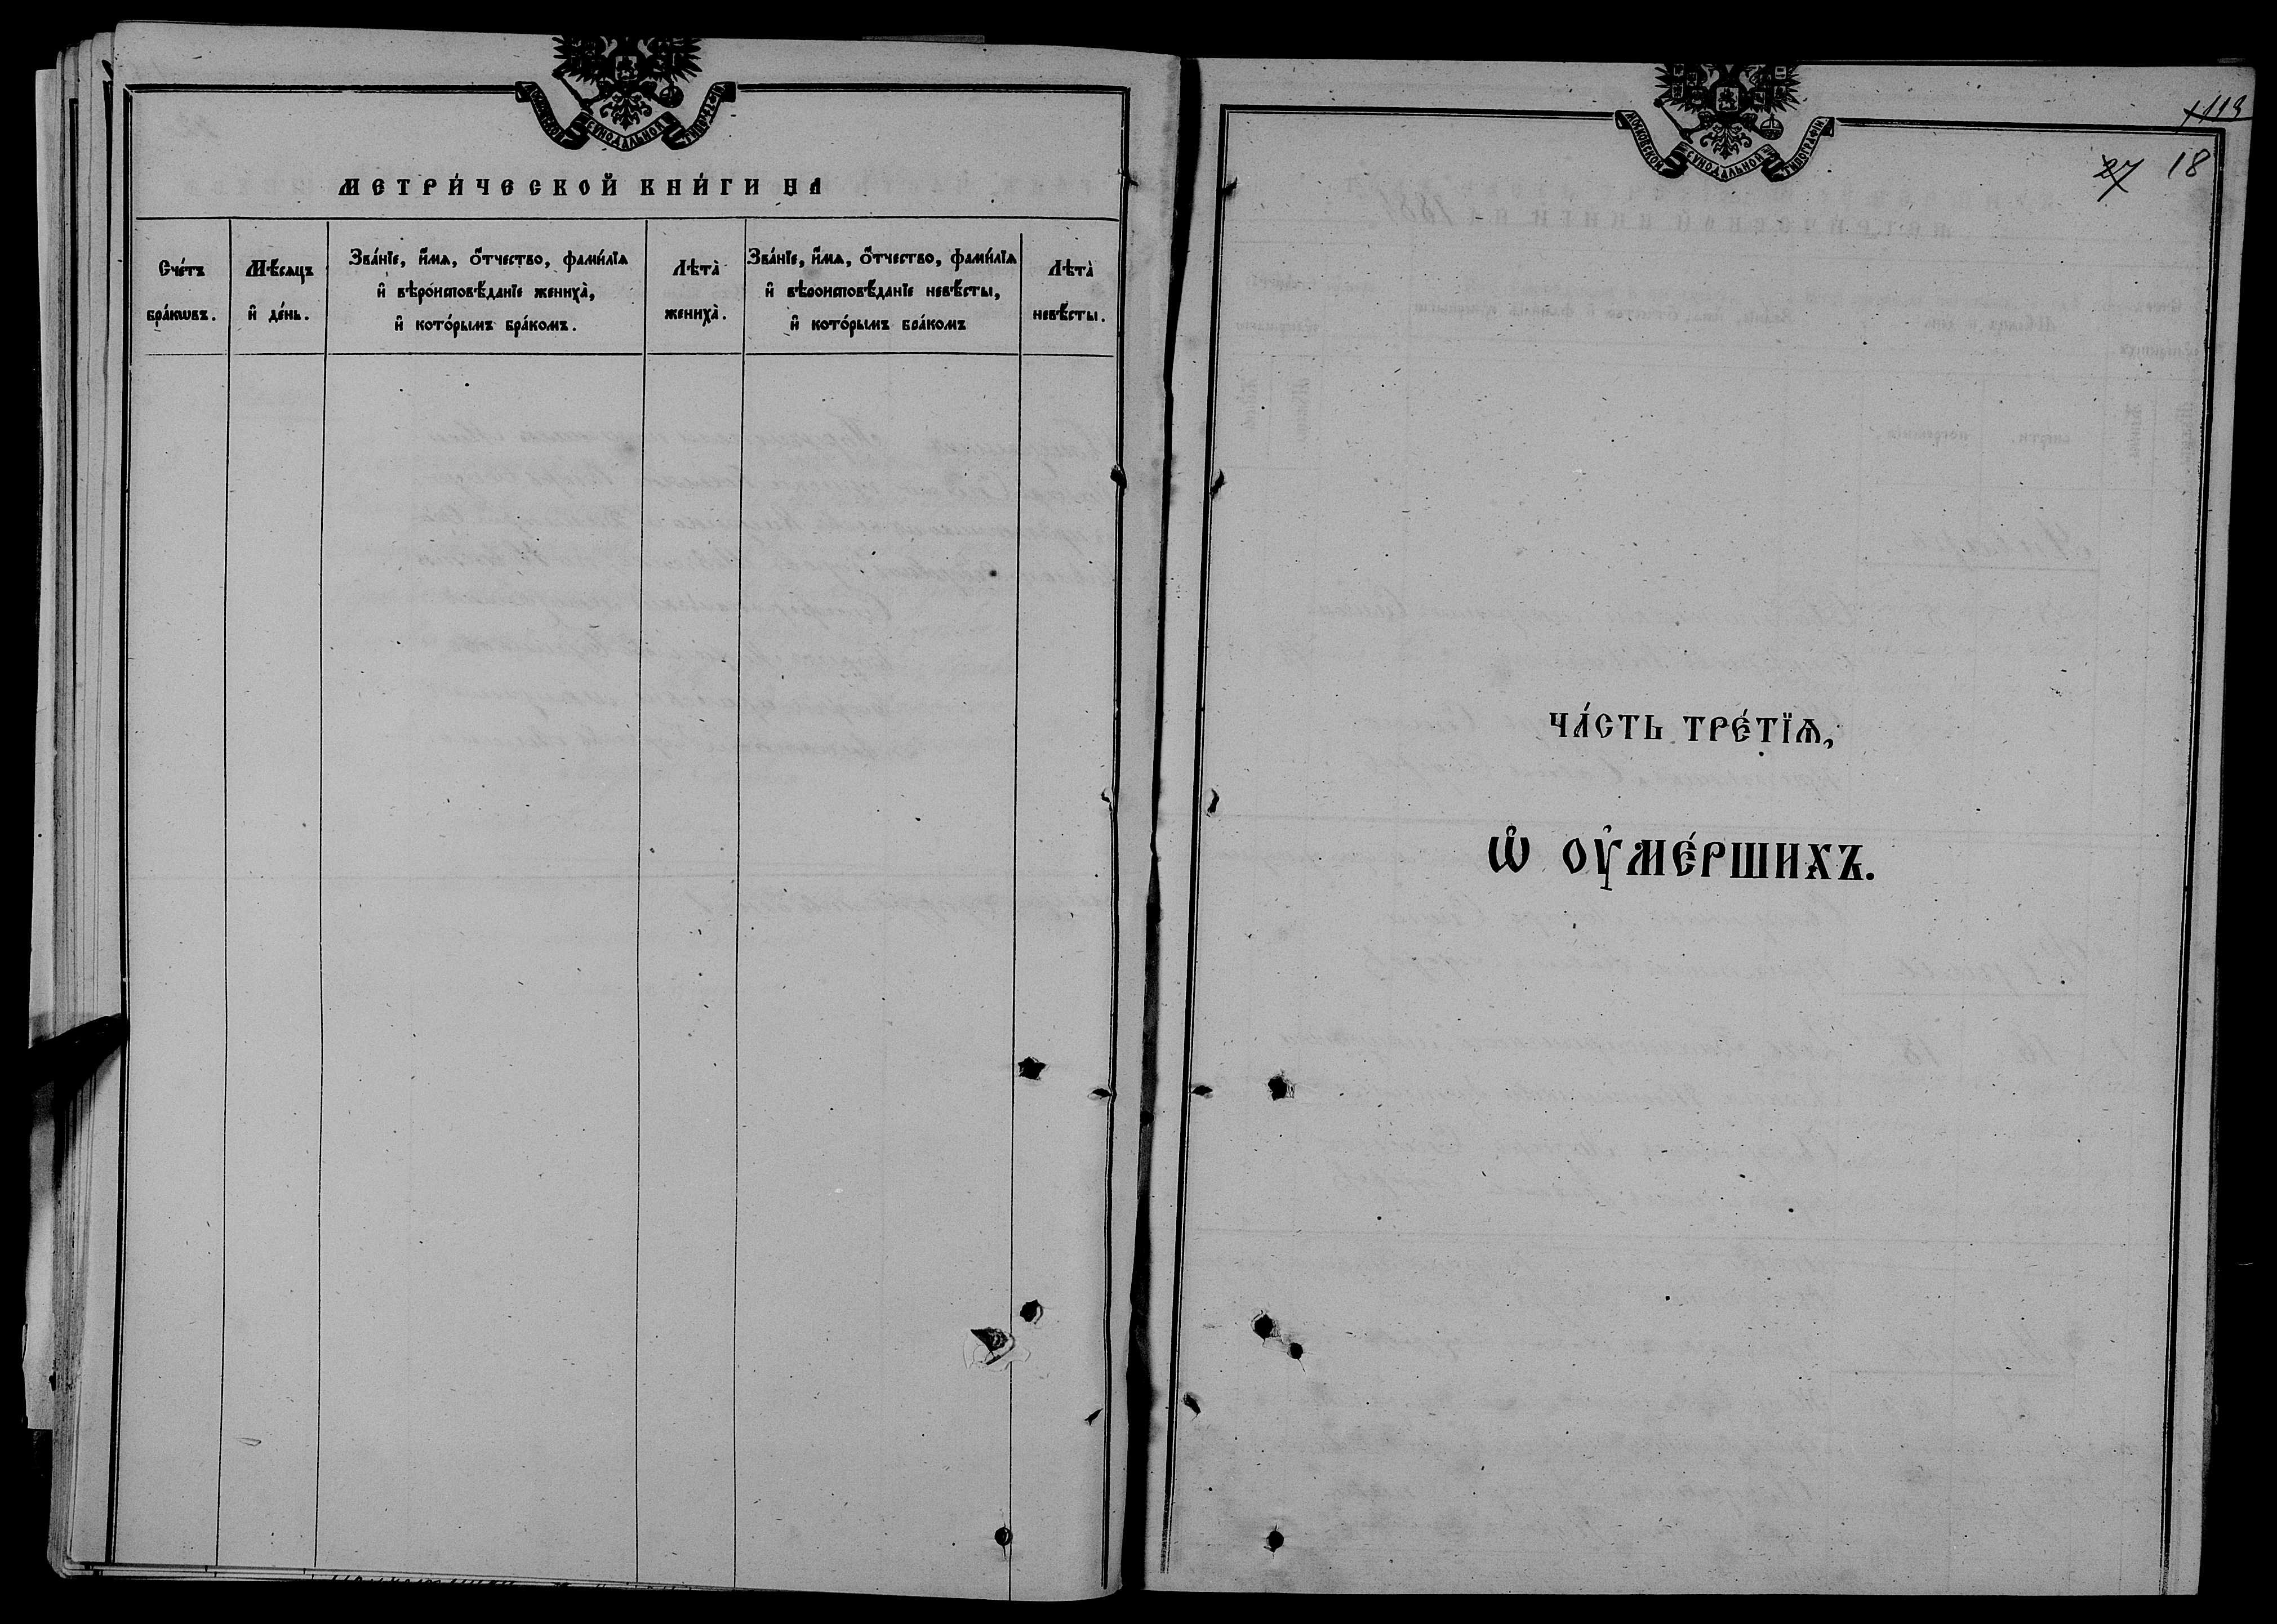 МОСКОВСКОЙ СѴНОДАЛЬНОЙ ТИПОГРАФІИ
МЕТРИ́ЧЕСКОЙ КНИ́ГИ НА
Сче́тъ бра́кωвъ.
Мѣ́сяцъ и҆ де́нь.
Зва́нїе, и҆́мѧ, ѻ҆́тчество, фами́лїѧ
и҆ вѣроисповѣ́данїе жениха̀,
и҆ кото́рымъ бра́комъ.
Лѣта̀ жениха̀.
Зва́нїе, и҆́мѧ, ѻ҆́тчество, фами́лїѧ
и҆ вѣроисповѣ́данїе невѣ́сты,
и҆ кото́рымъ бра́комъ
Лѣта̀ невѣ́сты.
МОСКОВСКОЙ СѴНОДАЛЬНОЙ ТИПОГРАФІИ
27 18
ЧА́СТЬ ТРЕ́ТЇѦ,
Ѡ҆ ОУ҆МЕ́РШИХЪ.